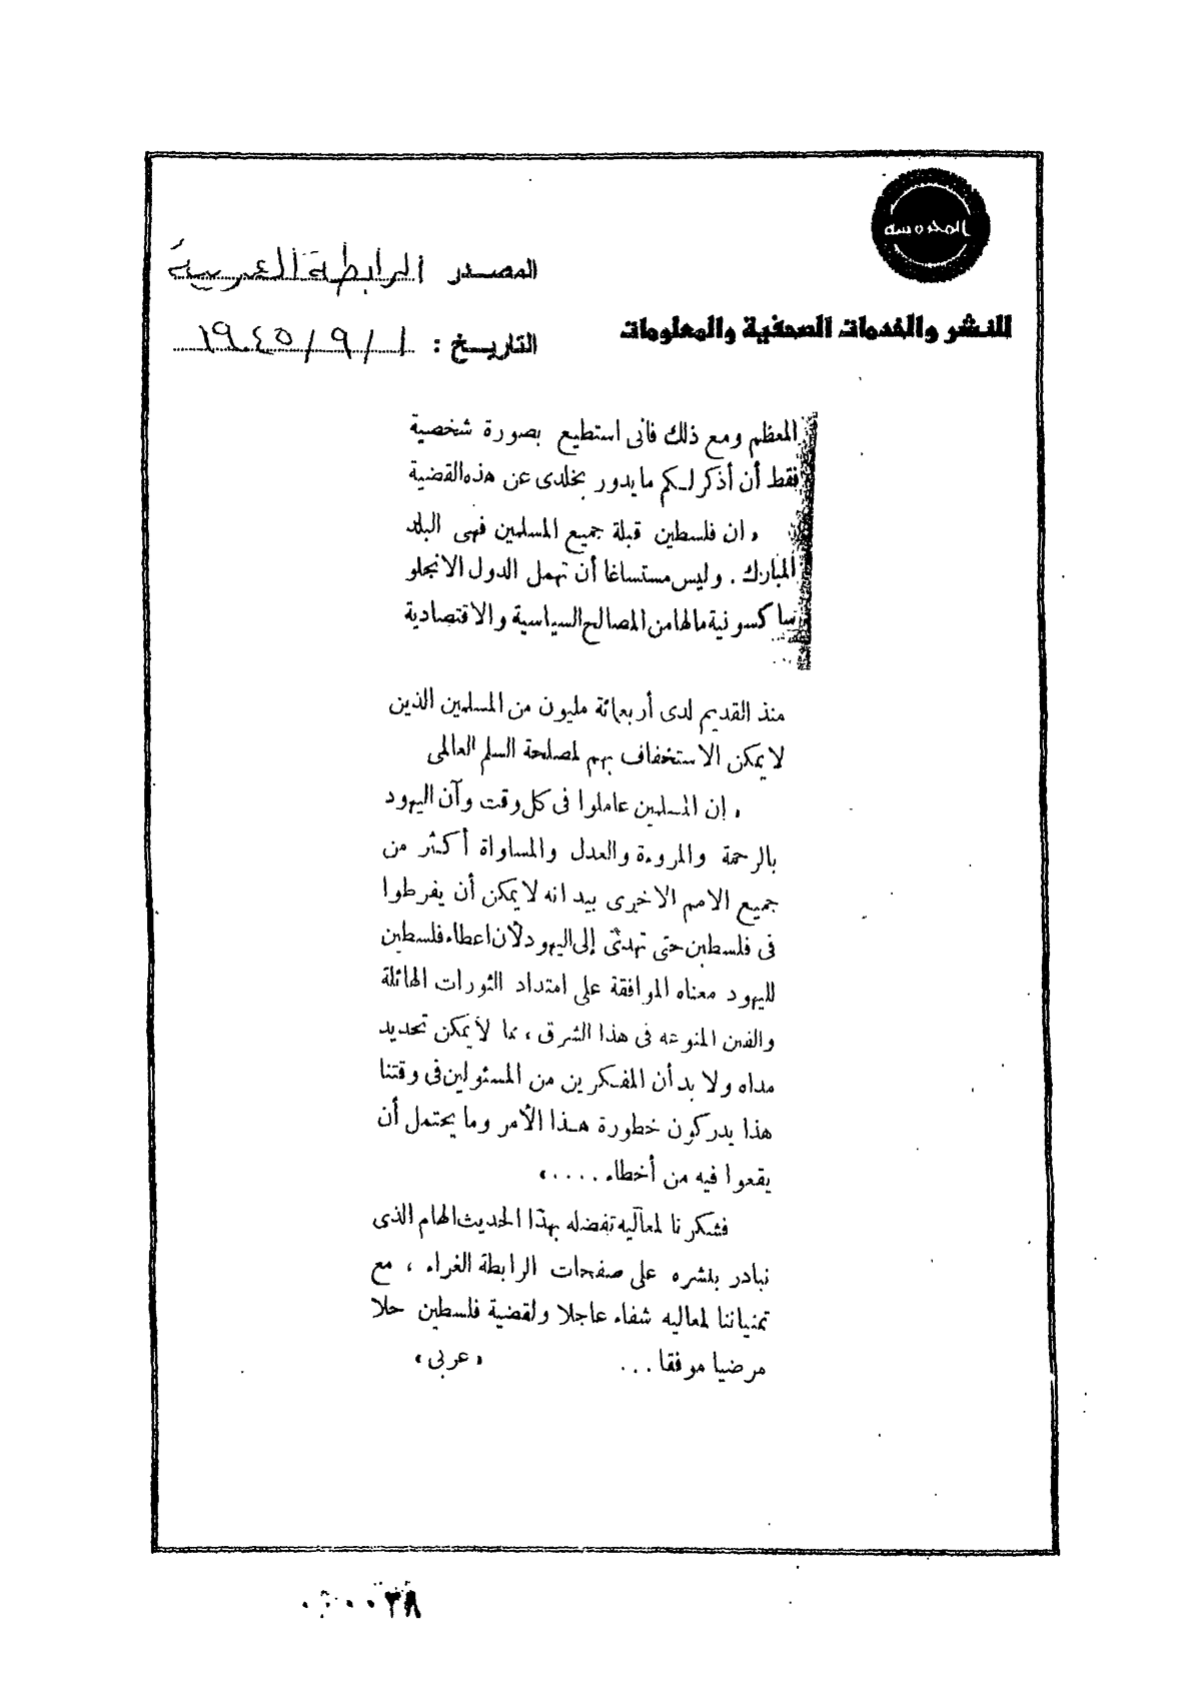 المحروسه
للنشر والخدمات الصحفية والمعلومات
المصدر الرابطة العربية
التاريخ : ١ / ٩ / ١٩٤٥
المعظم ومع ذلك فانى استطيع بصورة شخصية
فقط أن أذكر لكم ما يدور بخلدى عن هذه القضية
« ان فلسطين قبلة جميع المسلمين فهى البلد
المبارك . وليس مستساغا أن تهمل الدول الانجلو
ساكسونية مالها من المصالح السياسية والاقتصادية
منذ القديم لدى أربعمائة مليون من المسلمين الذين
لا يمكن الاستخفاف بهم لمصلحة السلم العالمى
« إن المسلمين عاملوا فى كل وقت وآن اليهود
بالرحمة والمروءة والعدل والمساواة أكثر من
جميع الامم الاخرى بيد انه لا يمكن أن يفرطوا
فى فلسطين حتى تهدئ إلى اليهود لأن اعطاء فلسطين
لليهود معناه الموافقة على امتداد الثورات الهائلة
والفتن المنوعه فى هذا الشرق ، مما لا يمكن تحديد
مداه ولا بد أن المفكرين من المسئولين فى وقتنا
هذا يدركون خطورة هذا الأمر وما يحتمل أن
يقعوا فيه من أخطاء .... »
فشكرنا لمعاليه تفضله بهذا الحديث الهام الذى
نبادر بنشره على صفحات الرابطة الغراء ، مع
تمنياتنا لمعاليه شفاء عاجلا ولقضية فلسطين حلا
مرضيا موفقا ... « عربى »